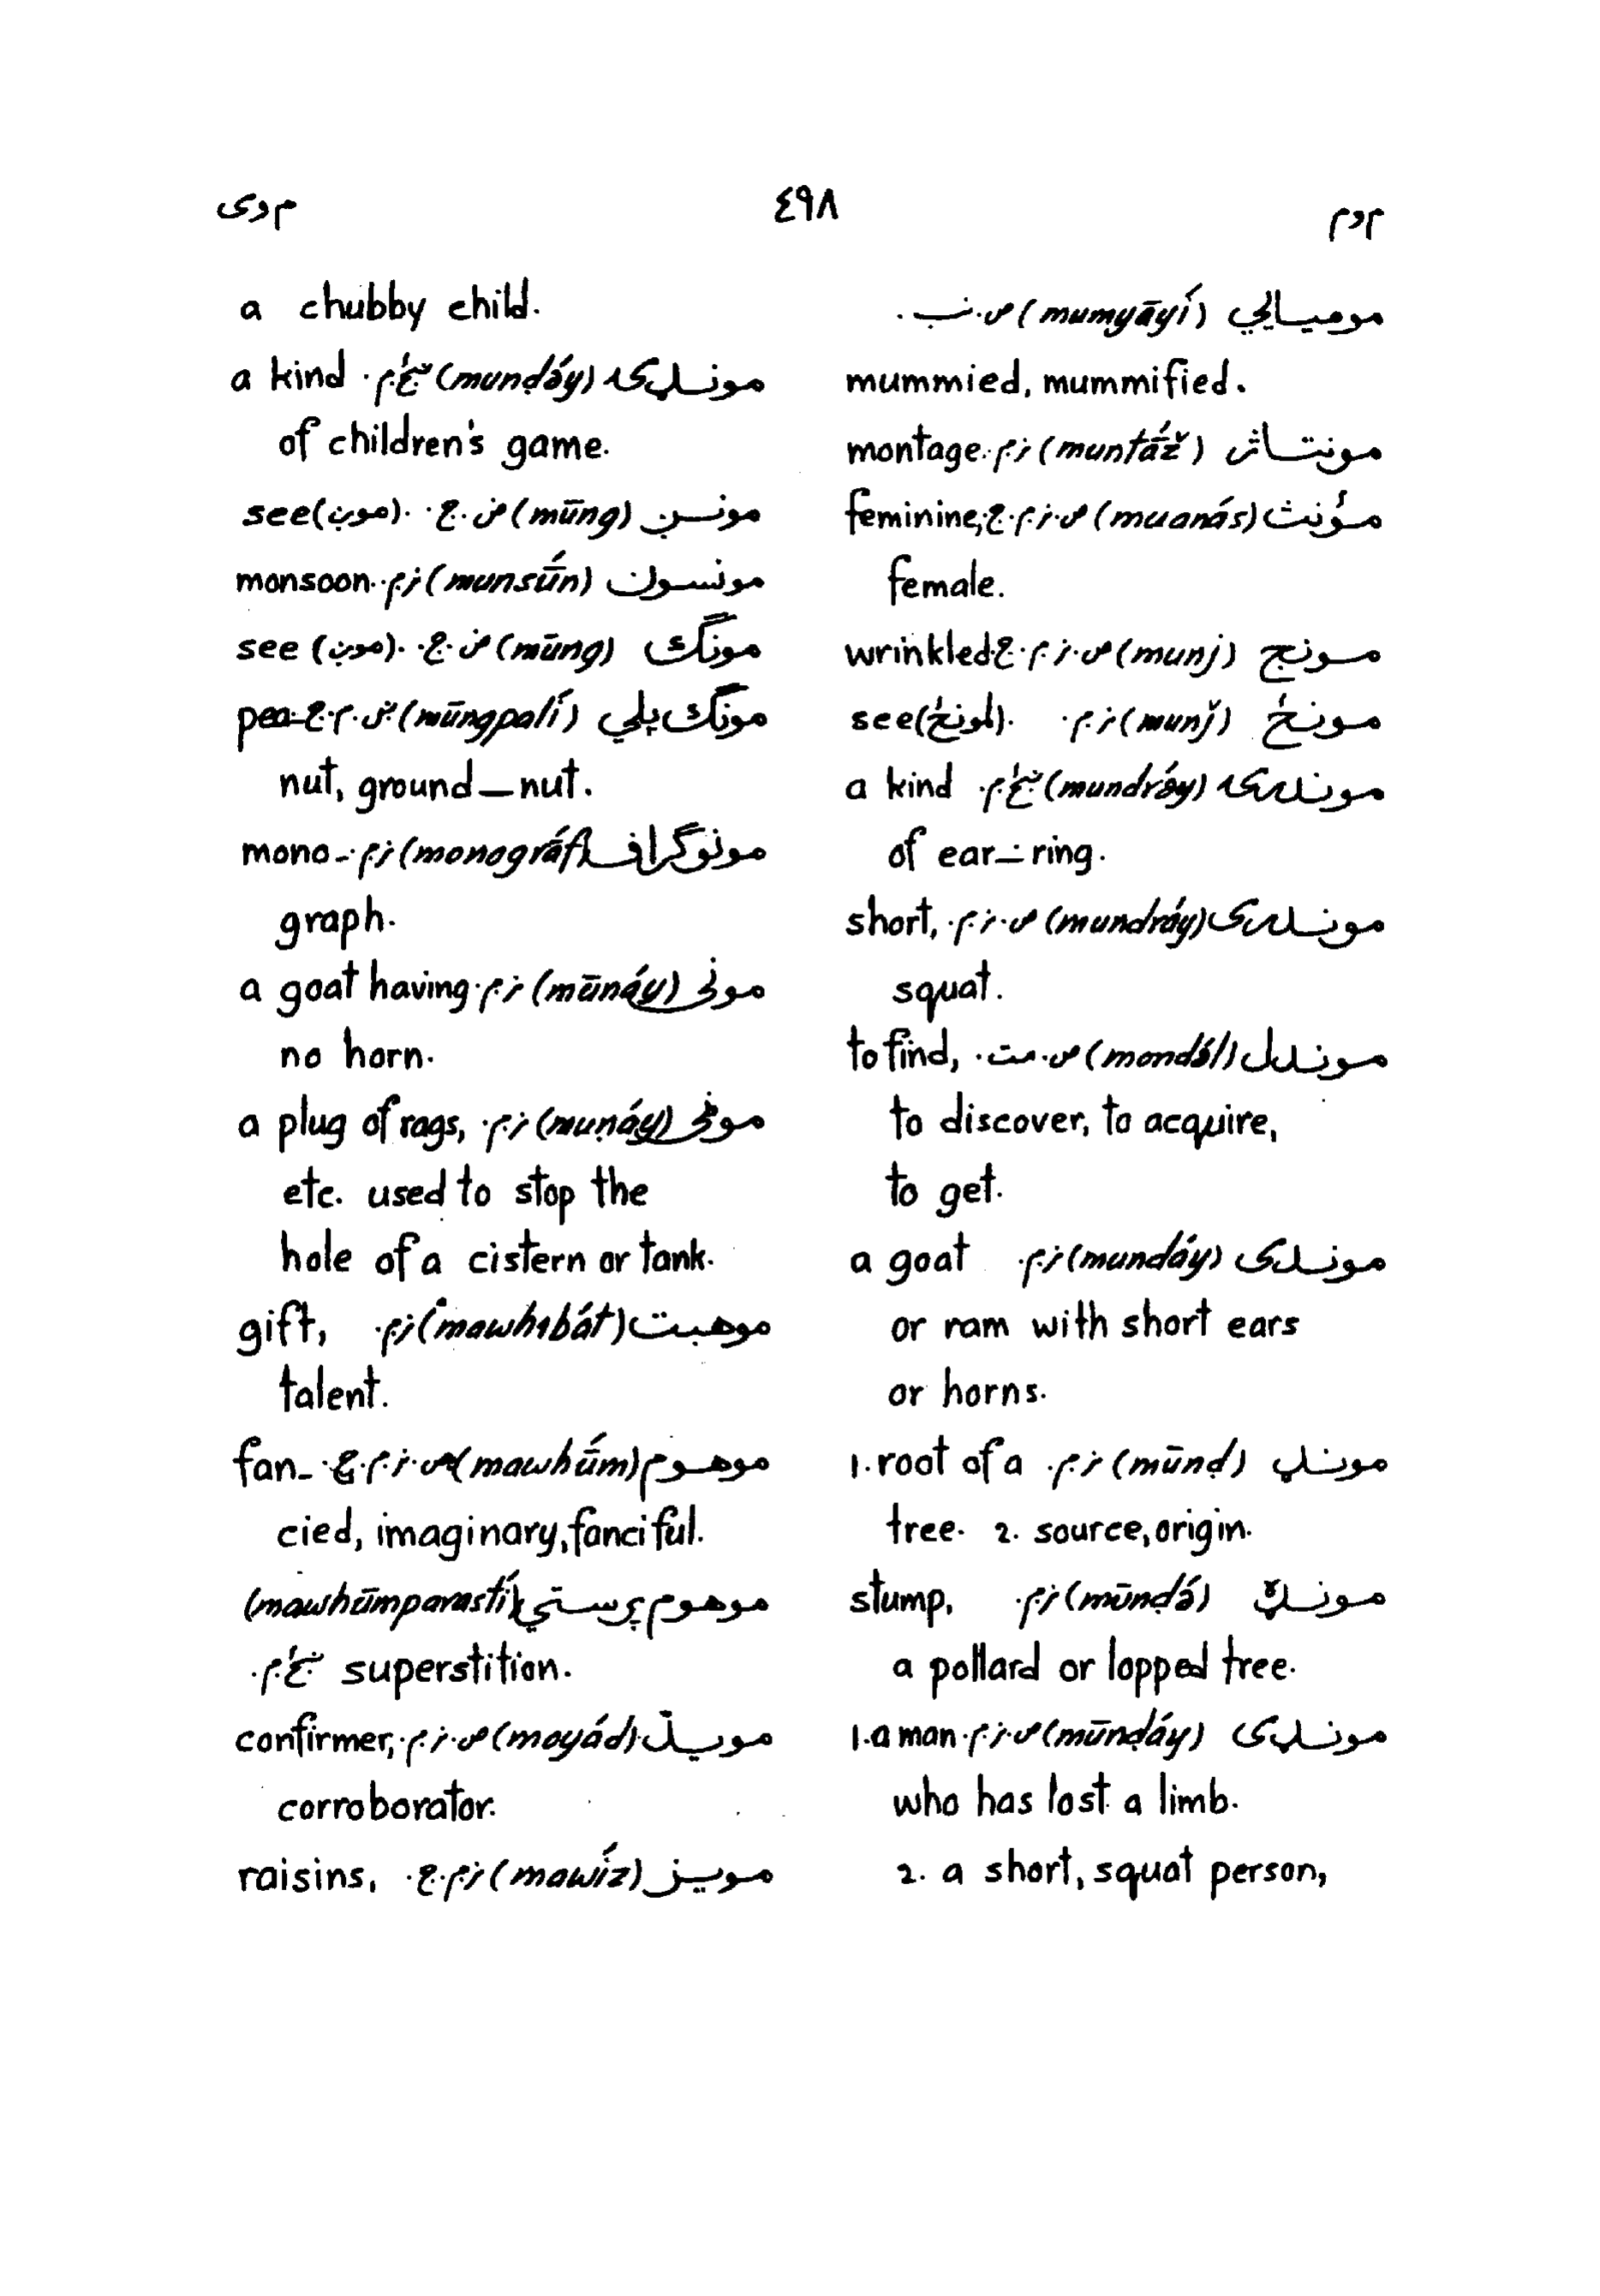 م و م
٤٩٨
م و ى
موميايي (mumyāyí) ص. نب.
mummied, mummified.
مونتاژ (muntā́ž) ن.م. montage.
مؤنث (muanás) ص. ن.م.ج. feminine,
female.
مونج (munj) ص. ن.م.ج. wrinkled
مونځ (munǰ) ن.م. see (لمونځ).
موندرۍ (mundrə́y) a kind
of ear-ring.
موندرى (mundráy) ص. ن.م. short,
squat.
موندل (mondə́l) ص. مت. to find,
to discover, to acquire,
to get.
موندى (mundáy) ن.م. a goat
or ram with short ears
or horns.
مونډ (mūnḍ) ن.م. 1. root of a
tree. 2. source, origin.
(mūnḍə́) ن.م. stump,
a pollard or lopped tree.
مونډى (mūnḍáy) ص. ن.م. 1. a man
who has lost a limb.
2. a short, squat person,
a chubby child.
مونډۍ (munḍə́y) a kind
of children's game.
(mūng) ض. ج. see (موږ).
مونسون (munsū́n) ن.م. monsoon.
مونګ (mūng) ض. ج. see (موږ).
مونګ پلي (mūngpalí) pea-
nut, ground-nut.
مونوګراف (monográf) ن.م. mono-
graph.
مونى (mūnáy) ن.م. a goat having
no horn.
موڼى (muṇáy) ن.م. a plug of rags,
etc. used to stop the
hole of a cistern or tank.
موهبت (mawhibát) ن.م. gift,
talent.
موهوم (mawhū́m) ص. ن.م.ج. fan-
cied, imaginary, fanciful.
موهوم پرستي (mawhūmparastí)
superstition.
مويد (moyád) ص. ن.م. confirmer,
corroborator.
مويز (mawíz) ن.م.ج. raisins,